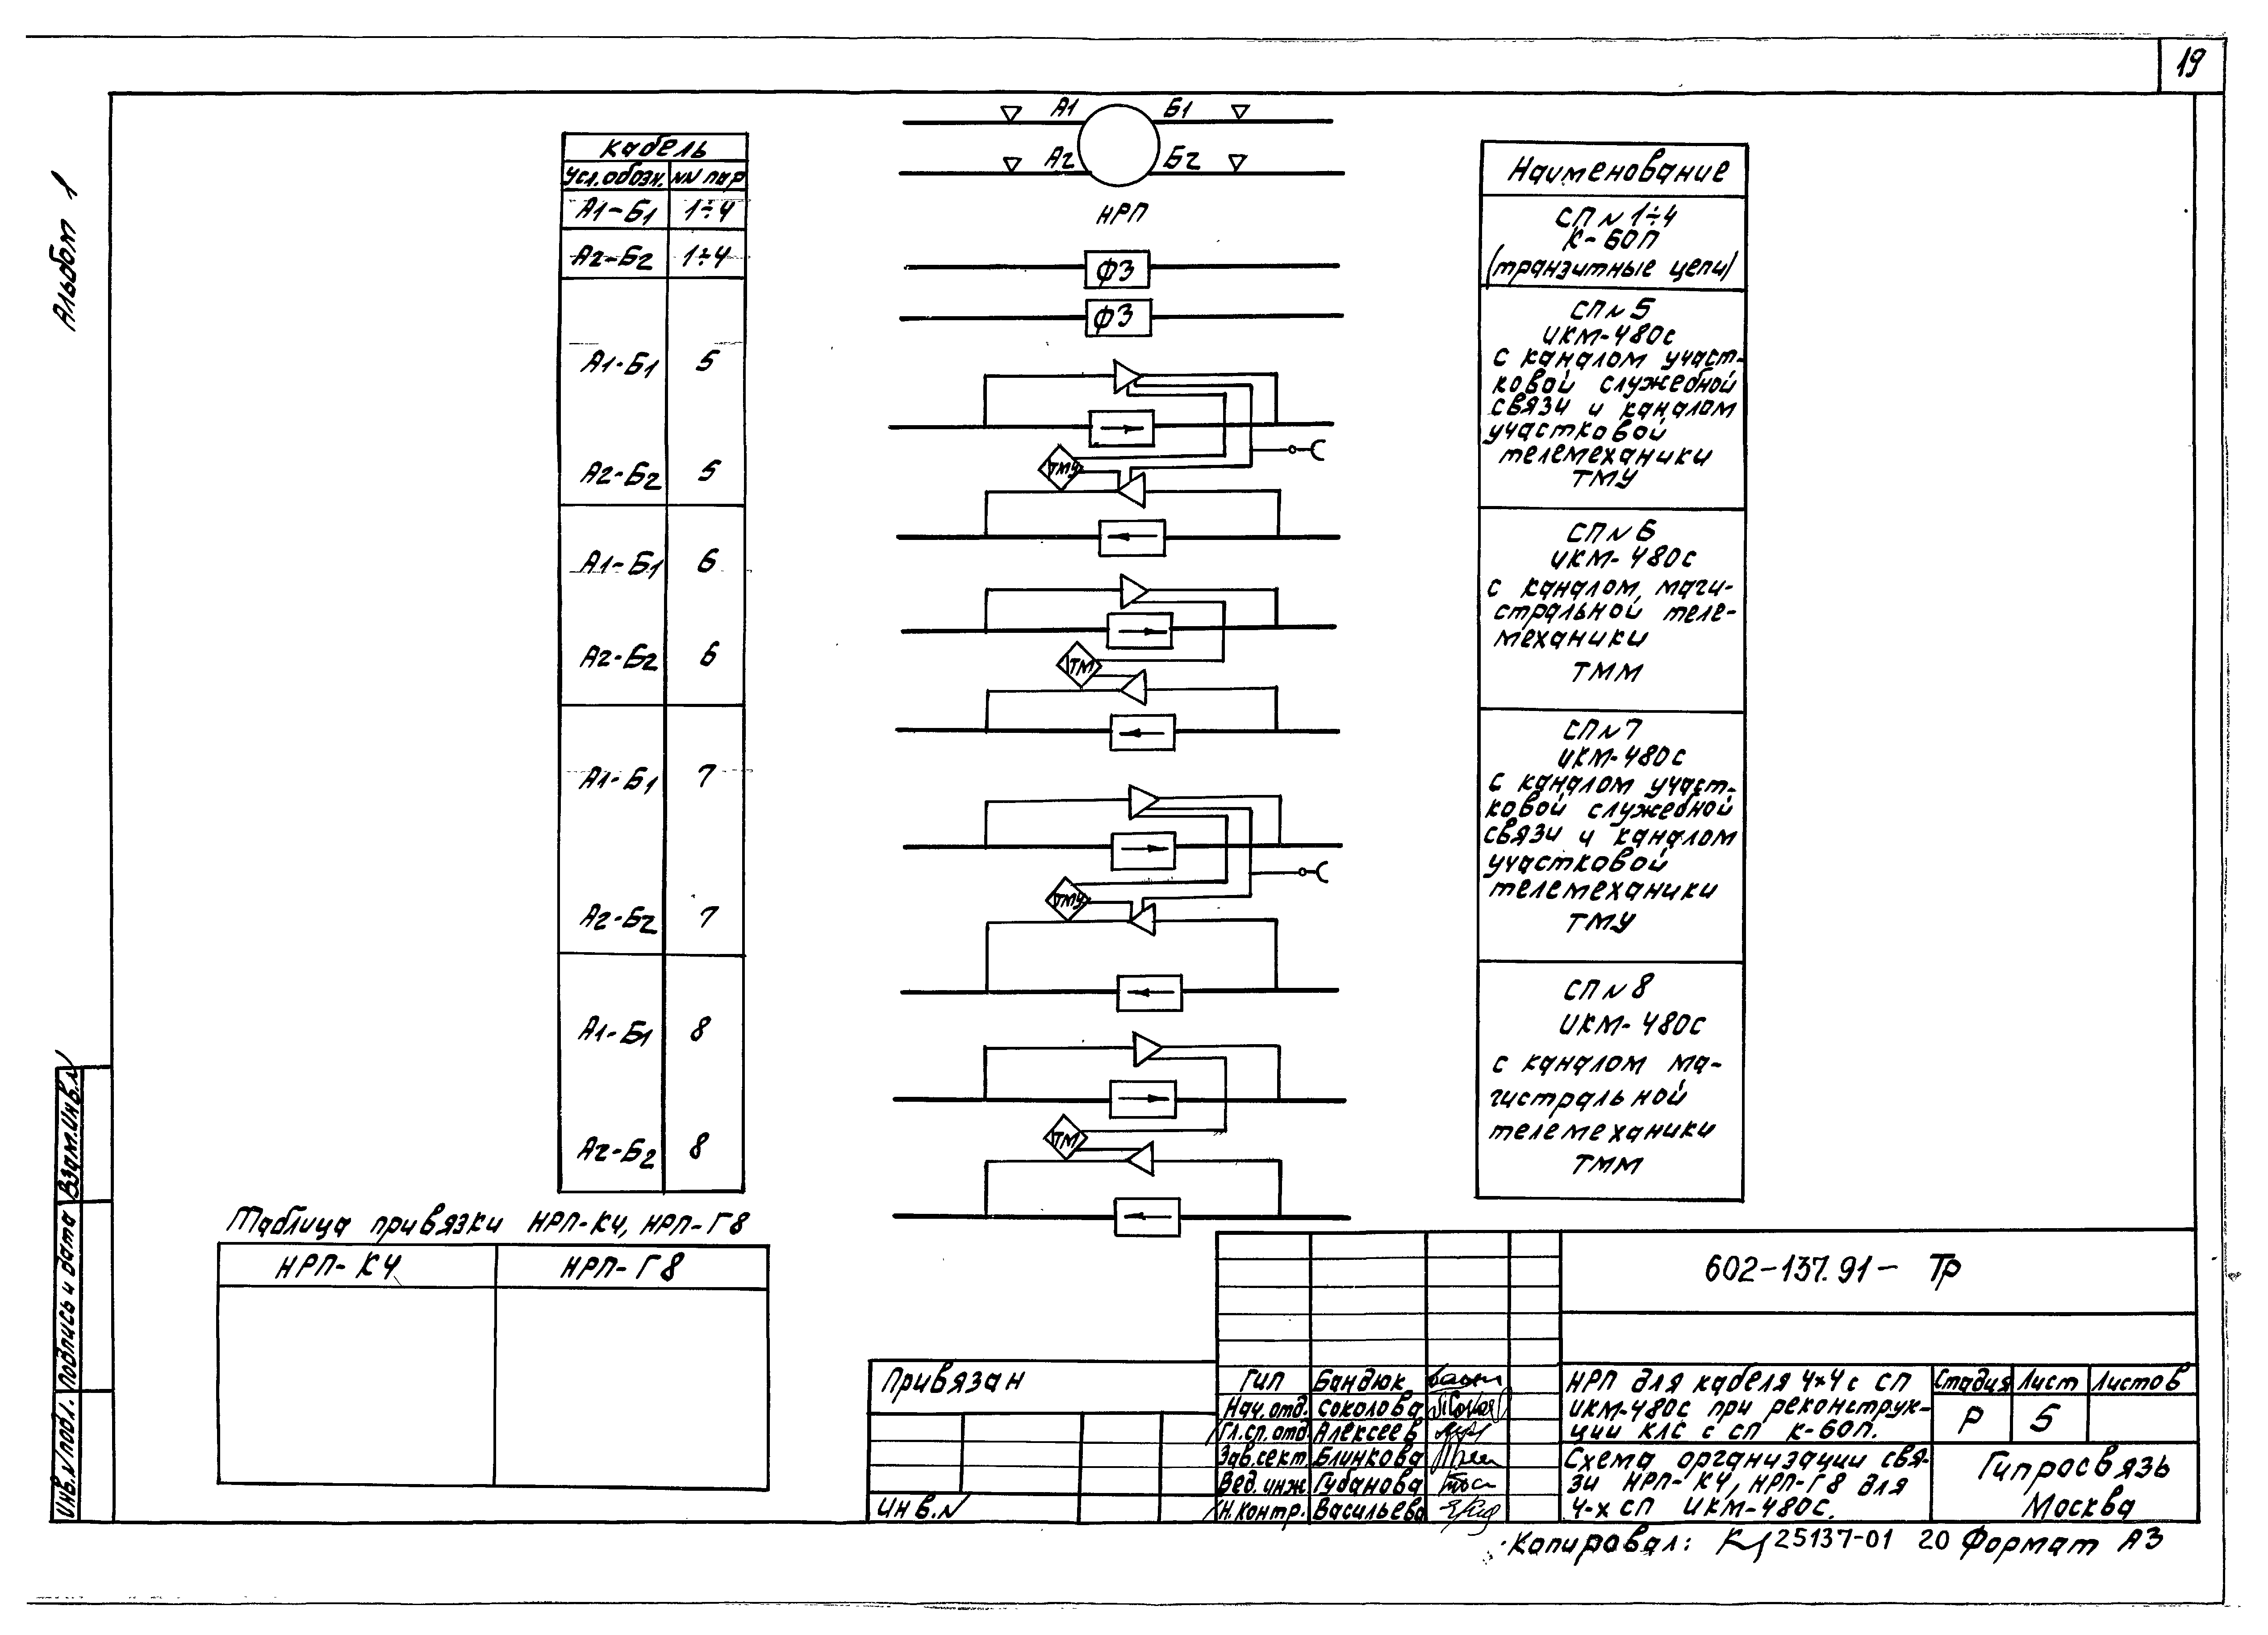 19
Альбом 1
А1 Б1
А2 Б2
НРП
кабель
Усл.обозн. NN пар
А1-Б1 1÷4
А2-Б2 1÷4
А1-Б1 5
А2-Б2 5
А1-Б1 6
А2-Б2 6
А1-Б1 7
А2-Б2 7
А1-Б1 8
А2-Б2 8
ФЗ
ФЗ
ТМУ
ТМ
ТМУ
ТМ
Наименование
СП N 1÷4
К-60П
(транзитные цепи)
СП N 5
ИКМ-480С
с каналом участ-
ковой служебной
связи и каналом
участковой
телемеханики
ТМУ
СП N 6
ИКМ-480С
с каналом маги-
стральной теле-
механики
ТММ
СП N 7
ИКМ-480С
с каналом участ-
ковой служебной
связи и каналом
участковой
телемеханики
ТМУ
СП N 8
ИКМ-480С
с каналом ма-
гистральной
телемеханики
ТММ
Таблица привязки НРП-К4, НРП-Г8
НРП-К4 НРП-Г8
Инв.N подл. Подпись и дата Взам.инв.N
Привязан
Инв.N
ГИП Бандюк
Нач.отд. Соколова
Гл.сп.отд. Алексеев
Зав.сект. Блинкова
Вед.инж. Губанова
Н.контр. Васильева
602-137.91- ТР
НРП для кабеля 4×4 с СП
ИКМ-480С при реконструк-
ции КЛС с СП К-60П.
Стадия Лист Листов
Р 5
Схема организации свя-
зи НРП-К4, НРП-Г8 для
4-х СП ИКМ-480С.
Гипросвязь
Москва
Копировал: 25137-01 20 Формат А3